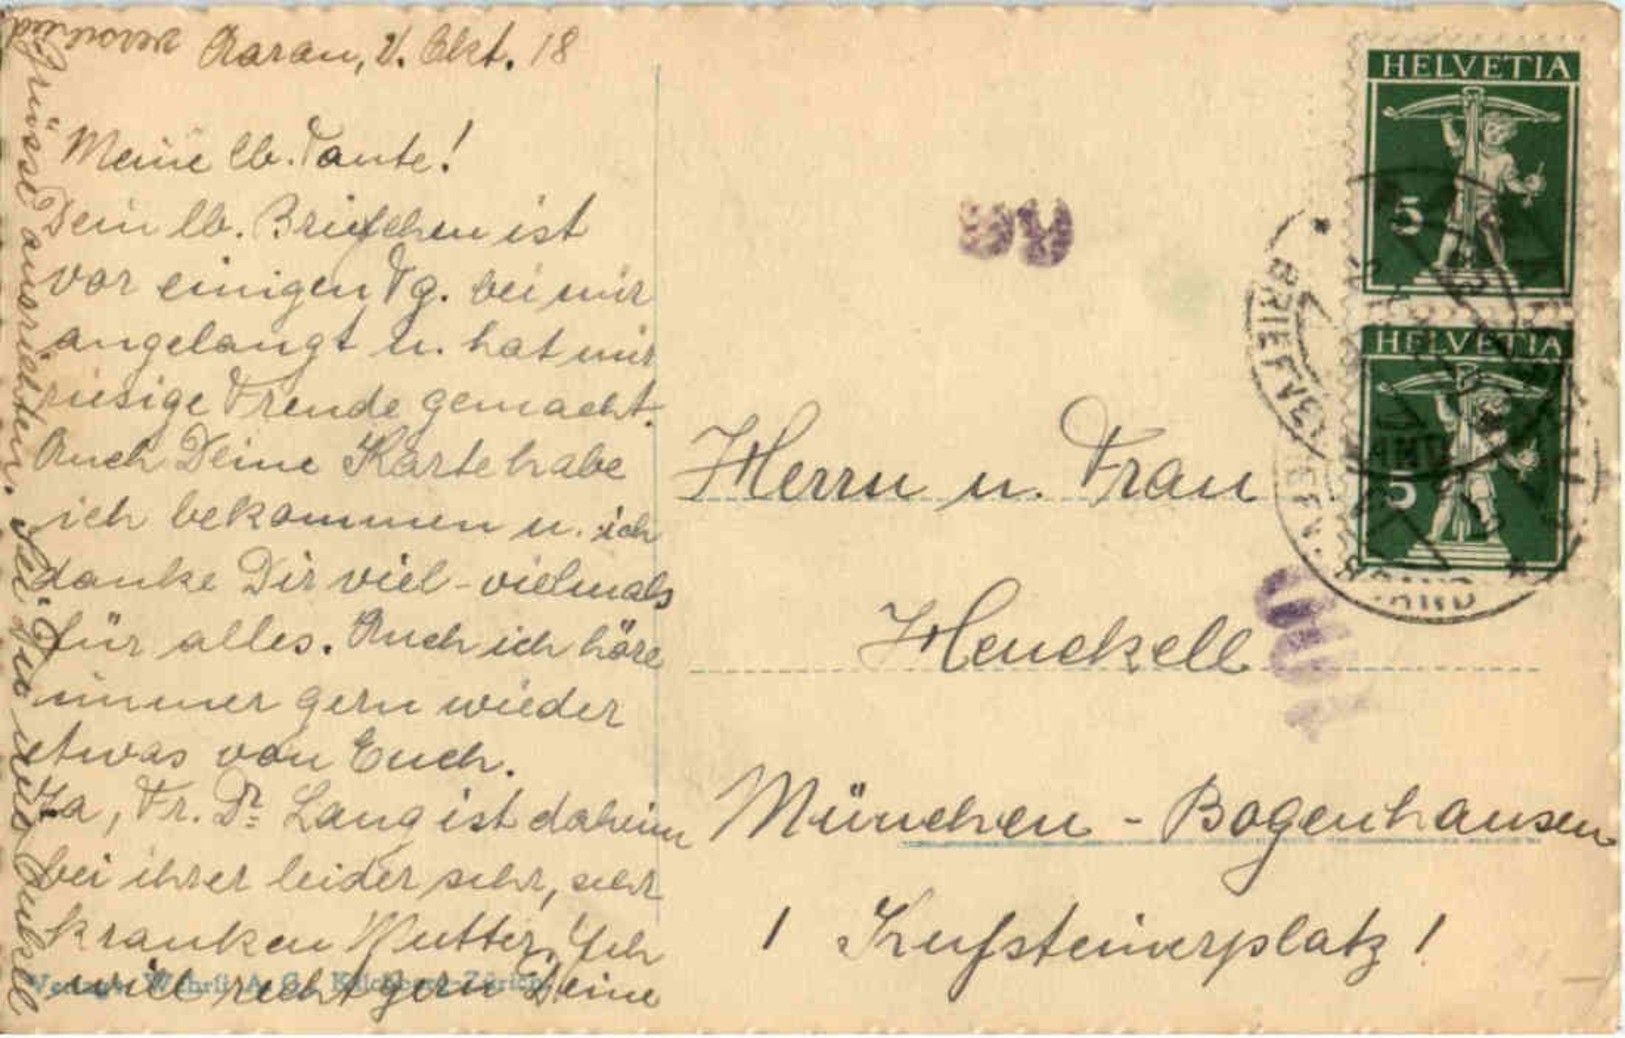 Aarau, 2. Okt. 18
Meine lb. Tante!
Dein lb. Briefchen ist
vor einigen Tg. bei mir
angelangt u. hat mir
riesige Freude gemacht.
Auch Deine Karte habe
ich bekommen u. ich
danke Dir viel-vielmals
für alles. Auch ich höre
immer gern wieder
etwas von Euch.
Ja, Fr. Dr. Lang ist daheim
bei ihrer leider sehr, sehr
kranken Mutter. Ich
will recht gern Deine
Grüsse ausrichten. Sei Du u. Onkel
HELVETIA
5
HELVETIA
5
BRIEFTR
Herrn u. Frau
Henckell
München - Bogenhausen
1 Kufsteinerplatz 1
Verlag Wehrli A. G., Kilchberg-Zürich